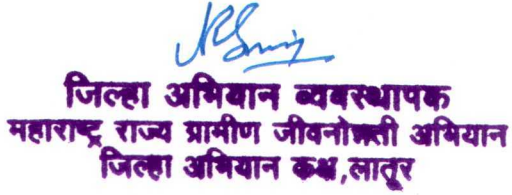 जिल्हा अभियान व्यवस्थापक
महाराष्ट्र राज्य ग्रामीण जीवनोन्नती अभियान
जिल्हा अभियान कक्ष,लातूर